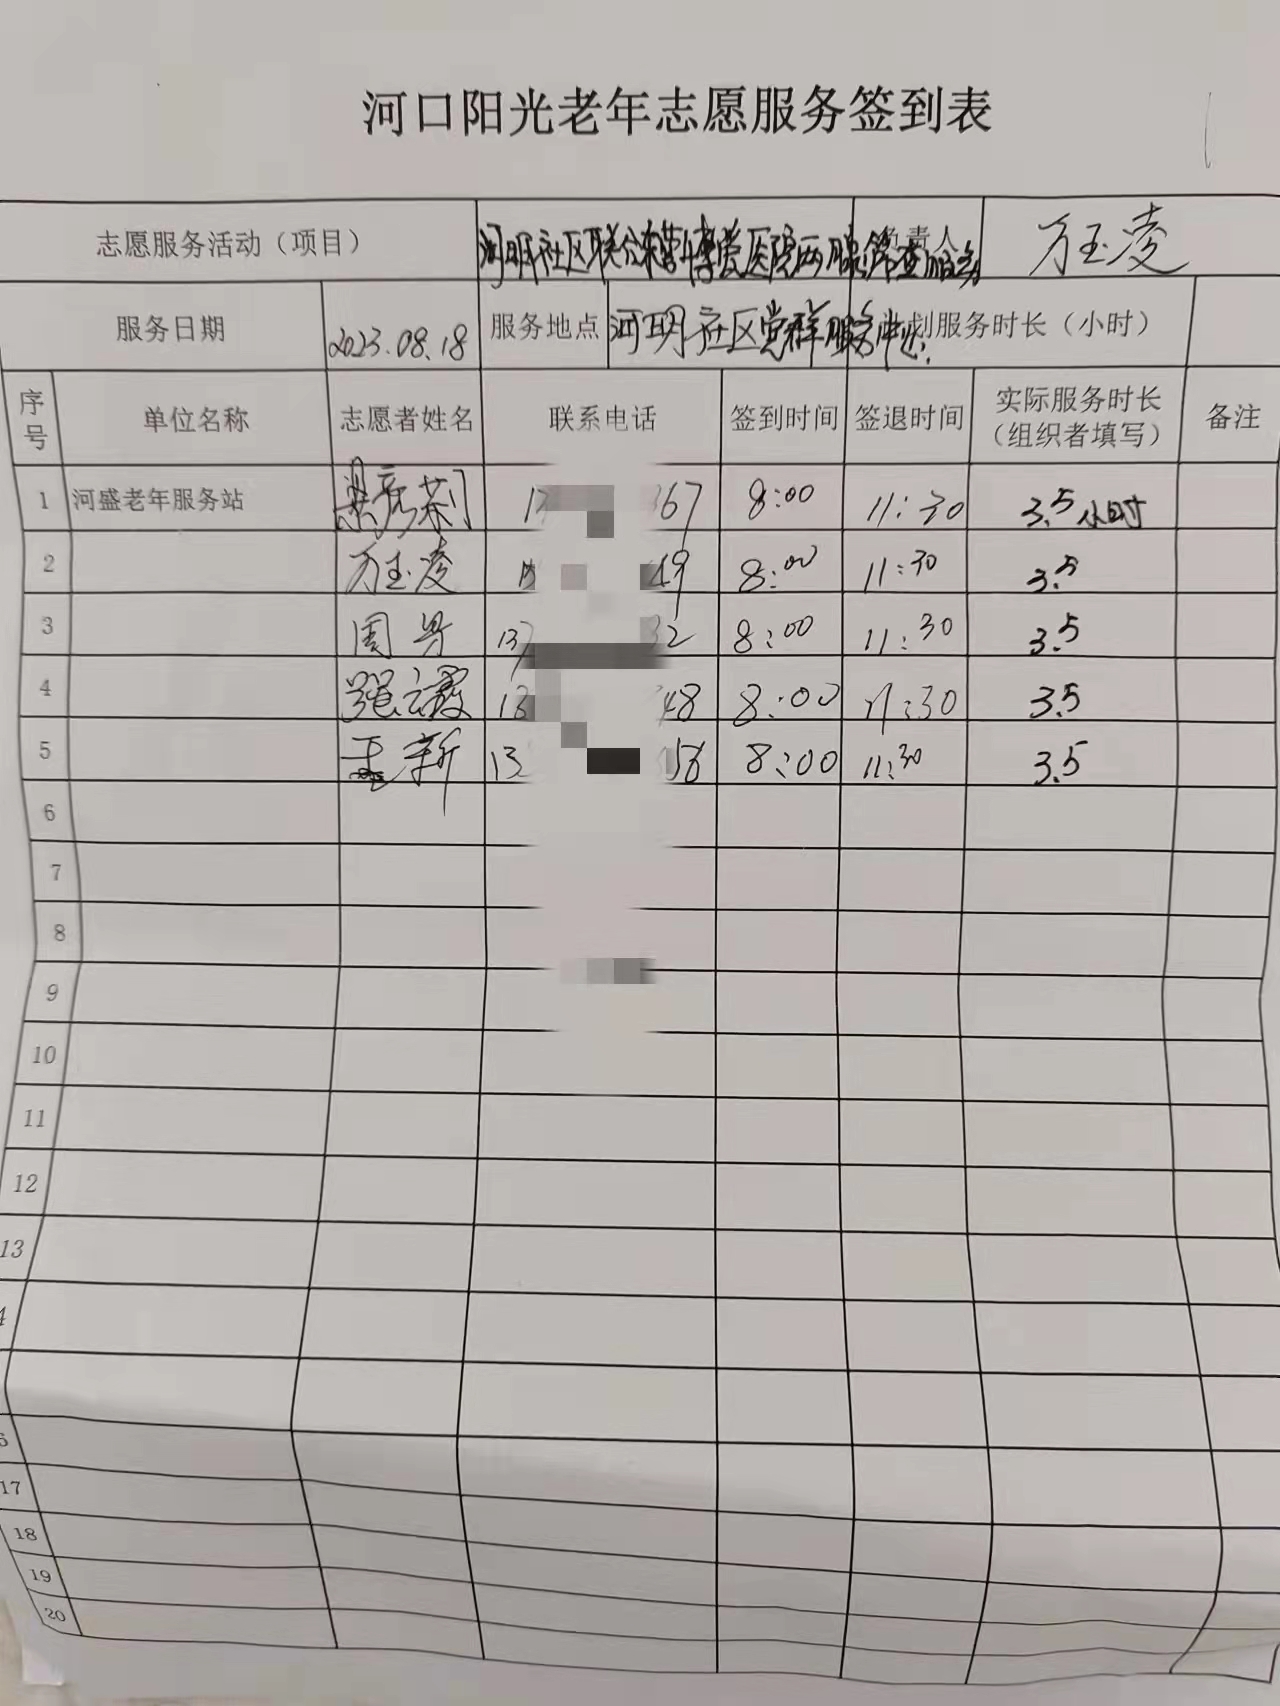 河口阳光老年志愿服务签到表
志愿服务活动（项目） 河明社区联合 博爱医院两 筛查服务 负责人 万玉凌
服务日期 2023.08.18 服务地点 河明社区党群服务中心 划服务时长（小时）
序号 单位名称 志愿者姓名 联系电话 签到时间 签退时间 实际服务时长（组织者填写） 备注
1 河盛老年服务站 梁彦荣 13 367 8:00 11:30 3.5小时
2 万玉凌 49 8:00 11:30 3.5
3 周丹 137 32 8:00 11:30 3.5
4 强云霞 18 48 8:00 11:30 3.5
5 王新 13 8:00 11:30 3.5
6
7
8
9
10
11
12
13
4
17
18
19
20